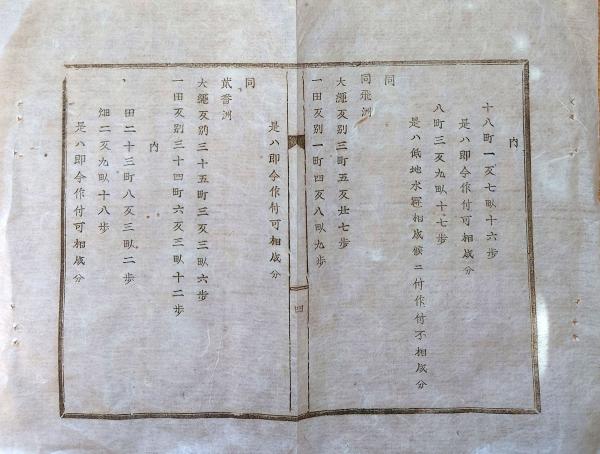 内
十八町一反七畝十六歩
是ハ即今作付可相成分
八町三反九畝十七歩
是ハ低地水冠相成候ニ付作付不相成分
同
同飛洲
大繩反別三町五反廿七歩
一田反別一町四反八畝九歩
是ハ即今作付可相成分
四
同
貳番洲
大繩反別三十五町三反三畝六歩
一田反別三十四町六反三畝十二歩
内
田二十三町八反三畝二歩
畑二反九畝十八歩
是ハ即今作付可相成分